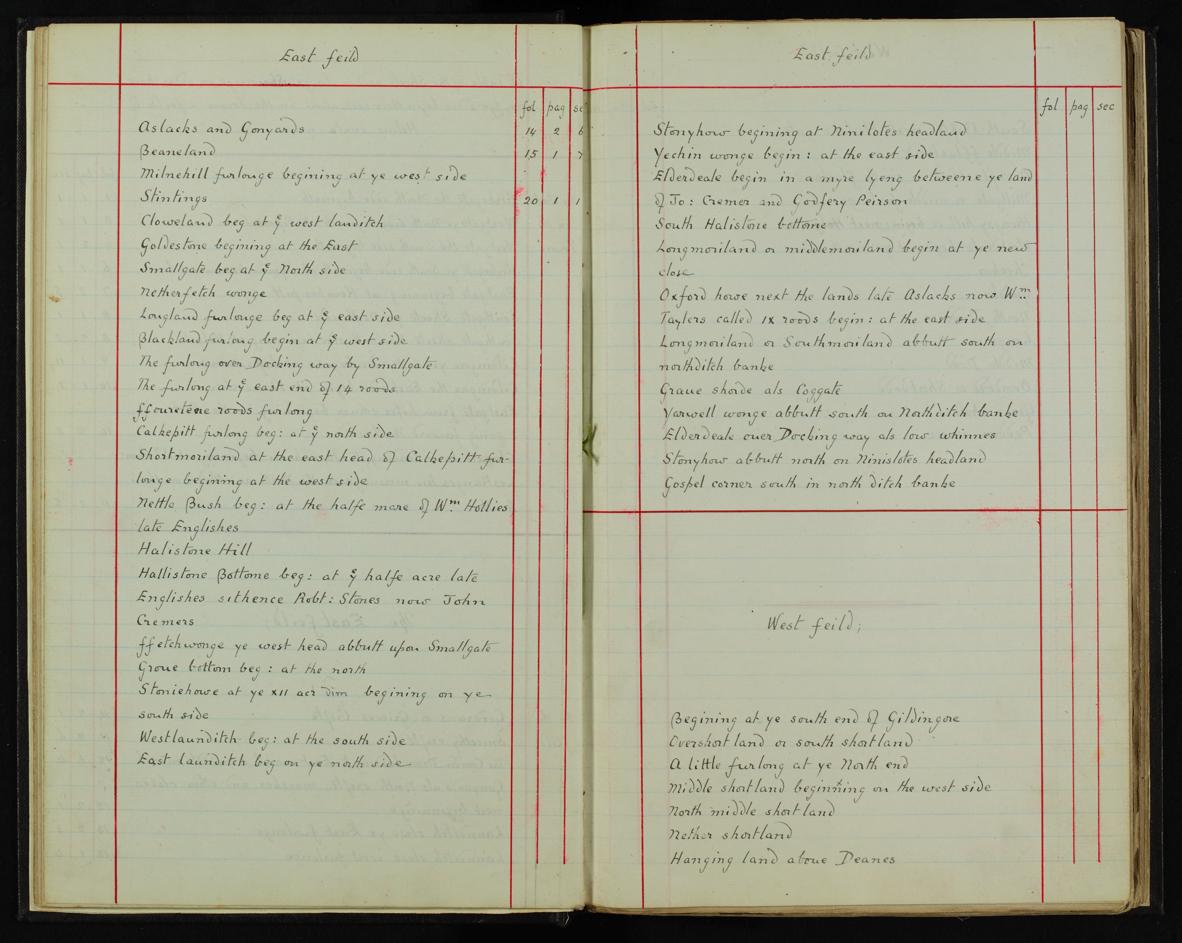 East feild
fol pag sec
Aslacks and Gonyards 14 2 6
Beaneland 15 1 7
Milnehill furlonge begining at ye west side
Stintings 20 1 1
Cloweland beg at ye west landitch
Goldestone begining at the East
Smallgate beg at ye North side
Netherfetch wonge
Longland furlonge beg at ye east side
Blackland furlong begin at ye west side
The furlong over Docking way by Smallgate
The furlong at ye east end of 14 roods
ffouretene roods furlong
Calkepitt furlong beg: at ye north side
Shortmoriland at the east head of Calkepitt fur-
longe begining at the west side
Nettle Bush beg: at the halfe mare of Wm Hollies
late Englishes
Halistone Hill
Hallistone Bottome beg: at ye halfe acre late
Englishes sithence Robt: Stones now John
Cremers
ffetchwonge ye west head abbutt upon Smallgate
Groue bottom beg: at the north
Stoniehowe at ye x11 acr dim begining on ye
south side
Westlaunditch beg: at the south side
East launditch beg on ye north side
East feild
fol pag sec
Stonyhow begining at Ninilotes headland
Yechin wonge begin: at the east side
Elderdeale begin in a myre lyeng betweene ye land
of Jo: Cremer and Godfery Peirson
South Halistone bottome
Longmoriland or middlemoriland begin at ye new
close
Oxford howe next the lands late Aslacks now Wm
Taylers called 1x roods begin: at the east side
Longmoriland or Southmoriland abbutt south on
northditch banke
Graue shorde als Coggate
Yarwell wonge abbutt south on Northditch banke
Elderdeale ouer Docking way als low whinnes
Stonyhow abbutt north on Ninislotes headland
Gospel corner south in north ditch banke
West feild;
Begining at ye south end of Gildingore
Overshort land or south shortland
A little furlong at ye North end
Middle shortland beginning on the west side
North middle shortland
Nether shortland
Hanging land aboue Deanes